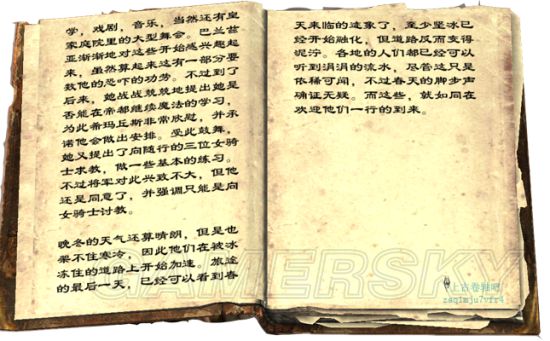 学，戏剧，音乐，当然还有皇
家庭院里的大型舞会。巴兰兹
亚渐渐地对这些开始感兴趣起
来，虽然算起来这有一部分要
数他的恐吓的功劳。不过到了
后来，她战战兢兢地提出她是
否能在帝都继续魔法的学习，
为此希玛丘斯非常欣慰，并承
诺他会做出安排。受此鼓舞，
她又提出了向随行的三位女骑
士求教，做一些基本的练习。
不过将军对此兴致不大，但他
还是同意了，并强调只能是向
女骑士讨教。
晚冬的天气还算晴朗，但是也
架不住寒冷，因此他们在被冰
冻住的道路上开始加速。旅途
的最后一天，已经可以看到春
天来临的迹象了，至少坚冰已
经开始融化，但道路反而变得
泥泞。各地的人们都已经可以
听到涓涓的流水，尽管这只是
依稀可闻，不过春天的脚步声
确证无疑。而这些，就如同在
欢迎他们一行的到来。
GAMERSKY
上古卷轴吧
zaq1mju7vfr4